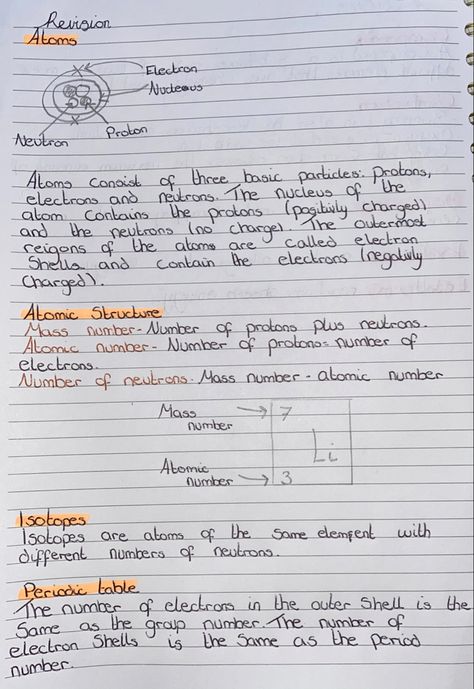 Revision
Atoms
Electron
Nucleous
Neutron
Proton
Atoms consist of three basic particles: Protons,
electrons and neutrons. The nucleus of the
atom contains the protons (positivly charged)
and the neutrons (no charge). The outermost
reigons of the atoms are called electron
Shells and contain the electrons (negativly
Charged).
Atomic Structure
Mass number - Number of protons plus neutrons.
Atomic number - Number of protons = number of
electrons.
Number of neutrons. Mass number - atomic number
Mass number
7
Li
Atomic number
3
Isotopes
Isotopes are atoms of the same element with
different numbers of neutrons.
Periodic table
The number of electrons in the outer Shell is the
Same as the group number. The number of
electron Shells is the Same as the period
number.